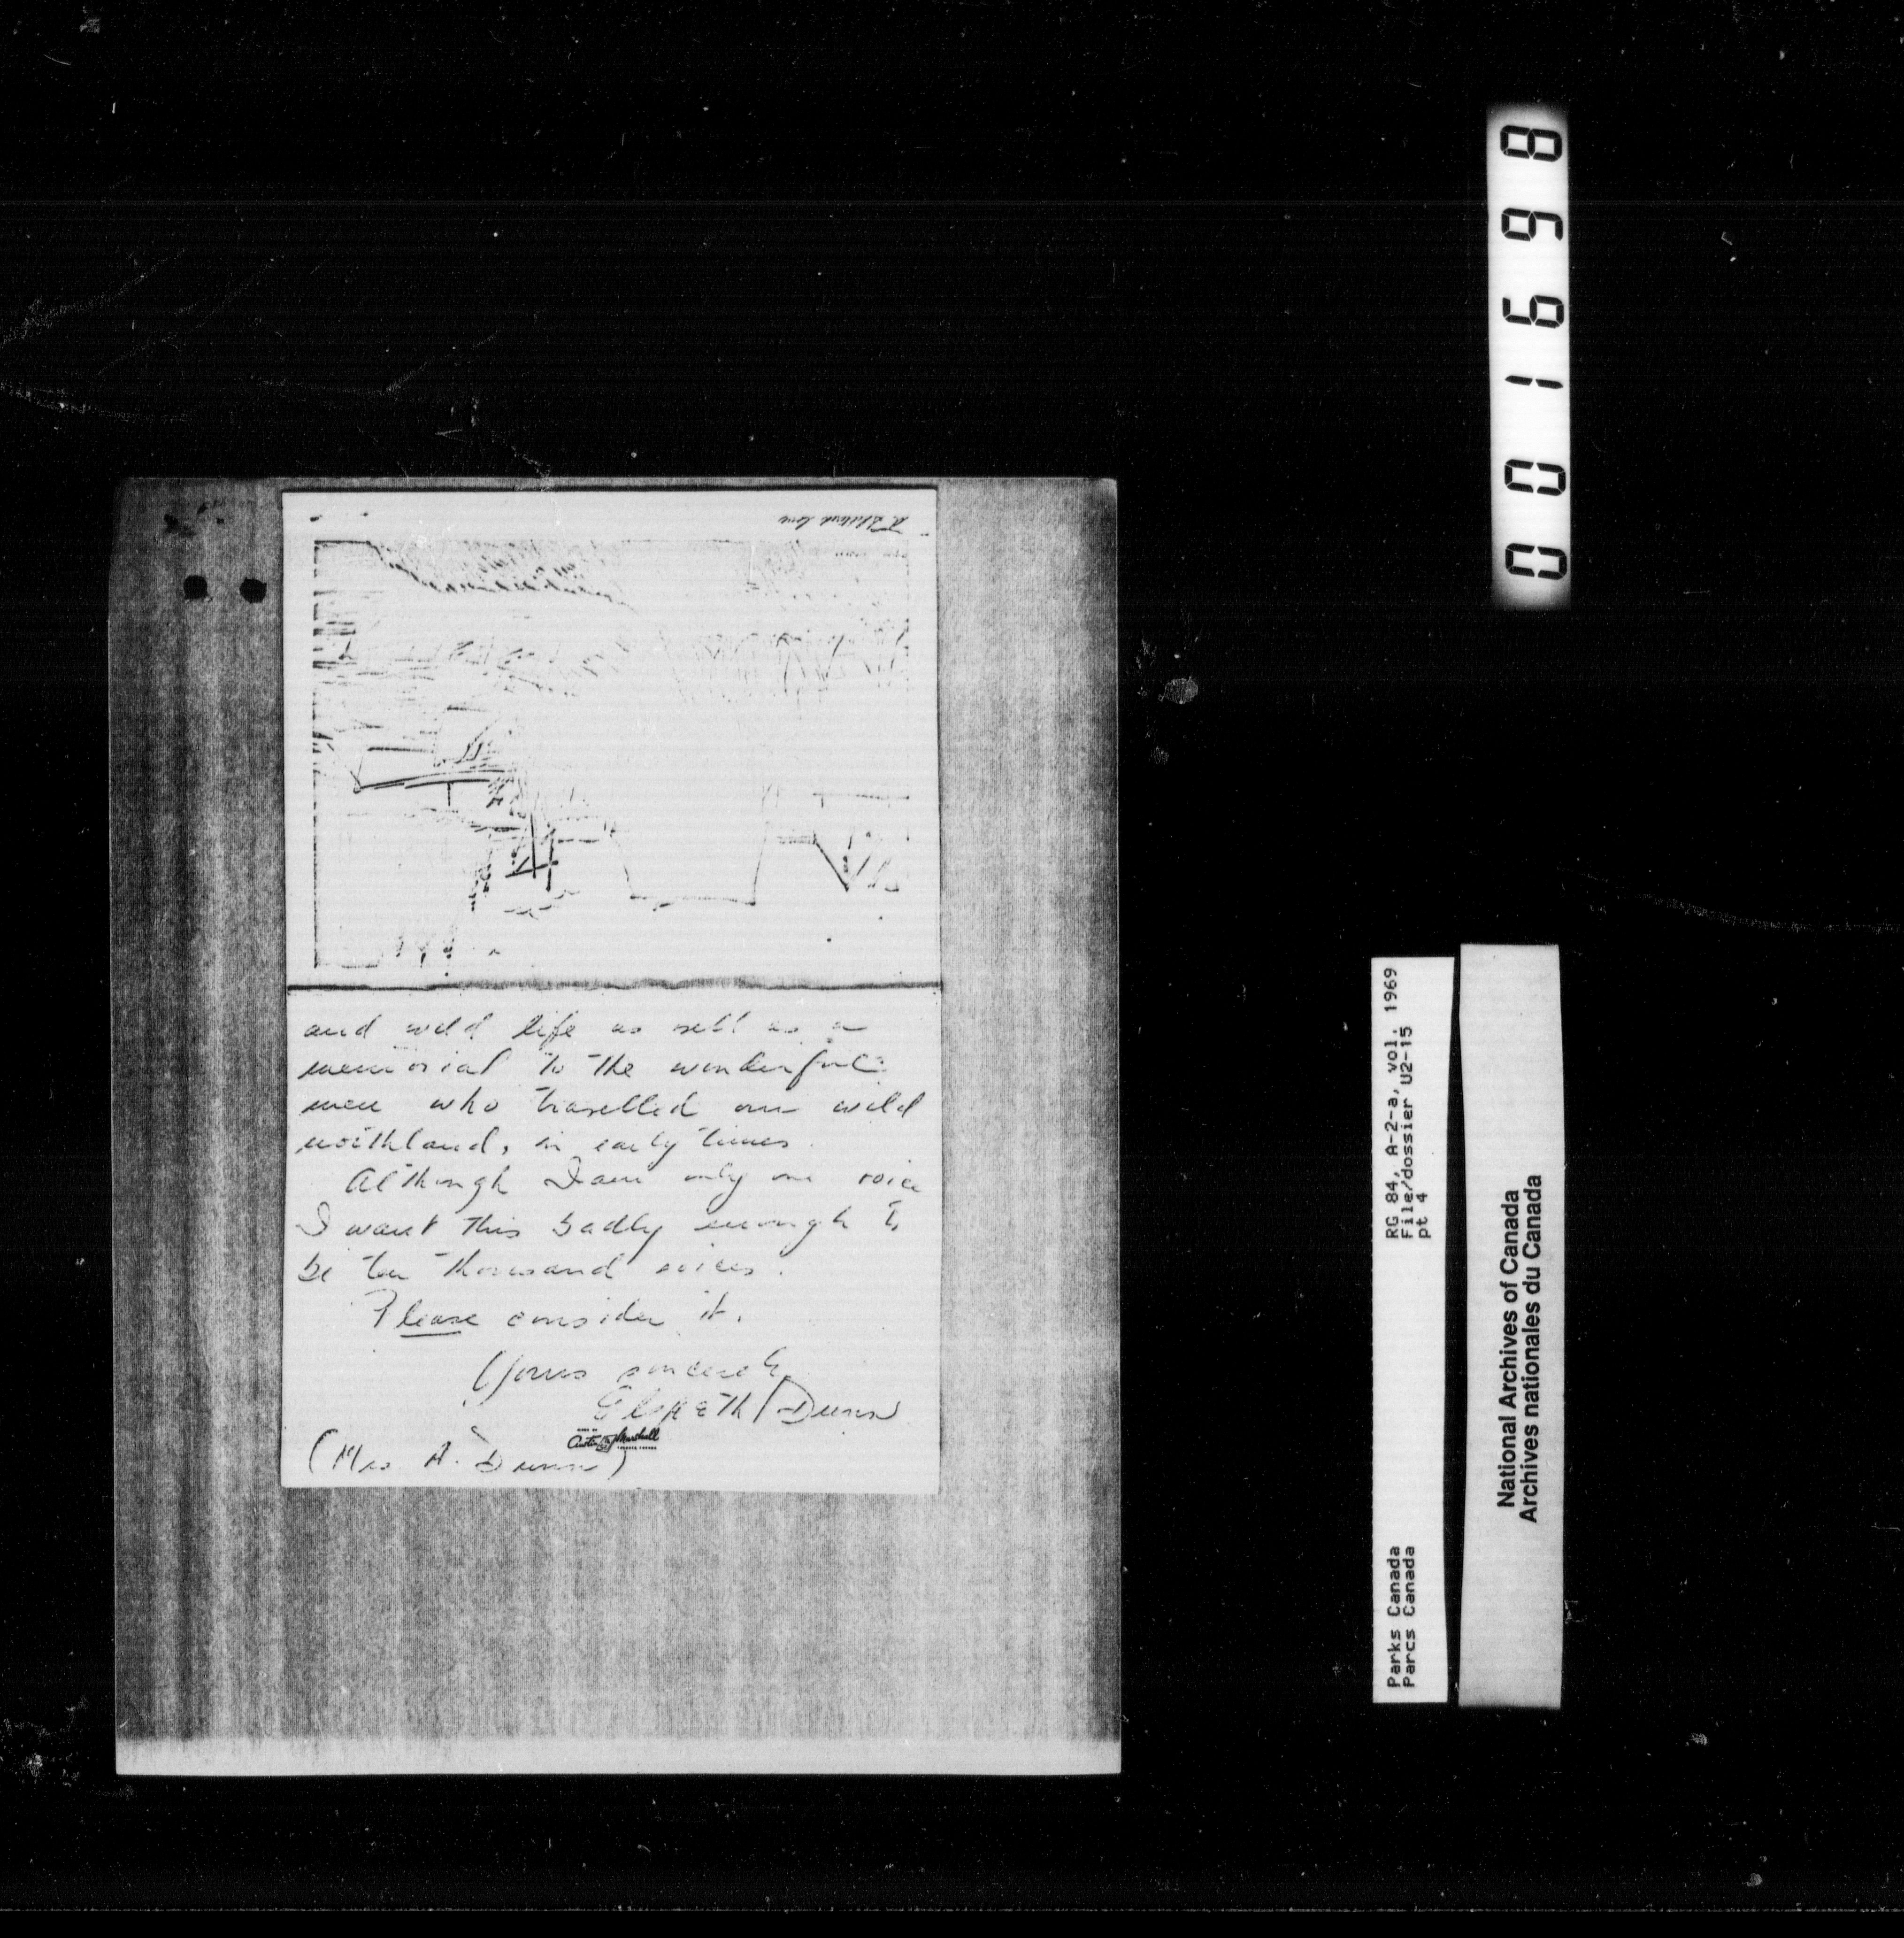 and wild life as well as a
memorial to the wonderful
men who travelled our wild
northland, in early times.
Although I am only one voice
I want this badly enough to
be ten thousand voices.
Please consider it.
Yours sincerely
Elspeth Dunn
Austin Marshall
(Mrs A. Dunn)
001698
RG 84, A-2-a, vol. 1969
File/dossier U2-15
pt 4
Parks Canada
Parcs Canada
National Archives of Canada
Archives nationales du Canada